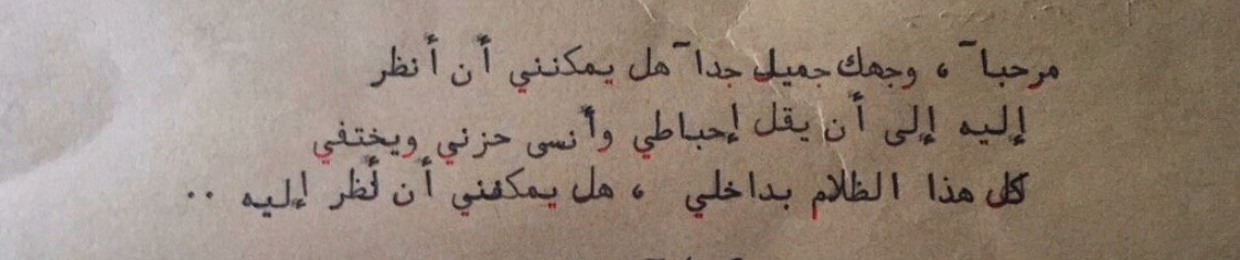 مرحباً ، وجهك جميل جداً هل يمكنني أن أنظر
إليه إلى أن يقل إحباطي وأنسى حزني ويختفي
كل هذا الظلام بداخلي ، هل يمكنني أن أنظر إليه ..